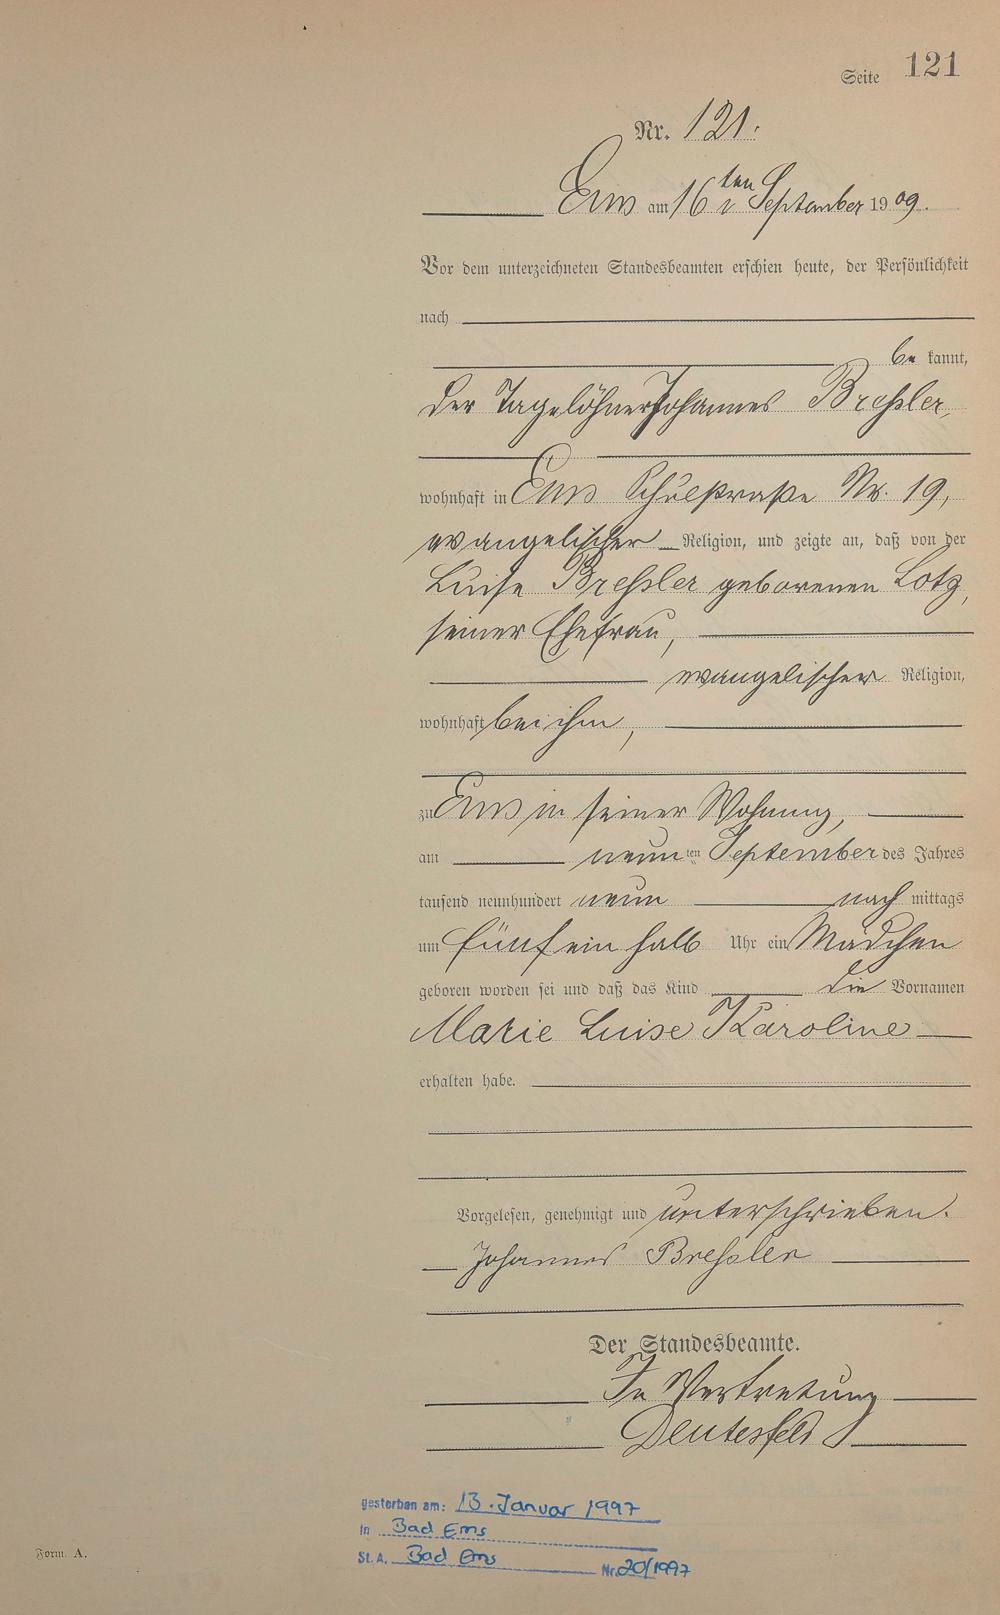 Seite 121
Nr. 121.
Ems am 16ten September 1909.
Vor dem unterzeichneten Standesbeamten erschien heute, der Persönlichkeit
nach
be kannt,
der Tagelöhner Johannes Breßler,
wohnhaft in Ems Schulstraße Nr. 19,
evangelischer Religion, und zeigte an, daß von der
Luise Breßler geborenen Lotz,
seiner Ehefrau,
evangelischer Religion,
wohnhaft bei ihm,
zu Ems in seiner Wohnung,
am neunten September des Jahres
tausend neunhundert neun nach mittags
um fünf ein halb Uhr ein Mädchen
geboren worden sei und daß das Kind die Vornamen
Marie Luise Karoline
erhalten habe.
Vorgelesen, genehmigt und unterschrieben.
Johannes Breßler
Der Standesbeamte.
In Vertretung
gestorben am: 13. Januar 1997
in Bad Ems
St. A. Bad Ems Nr. 20/1997
Form. A.